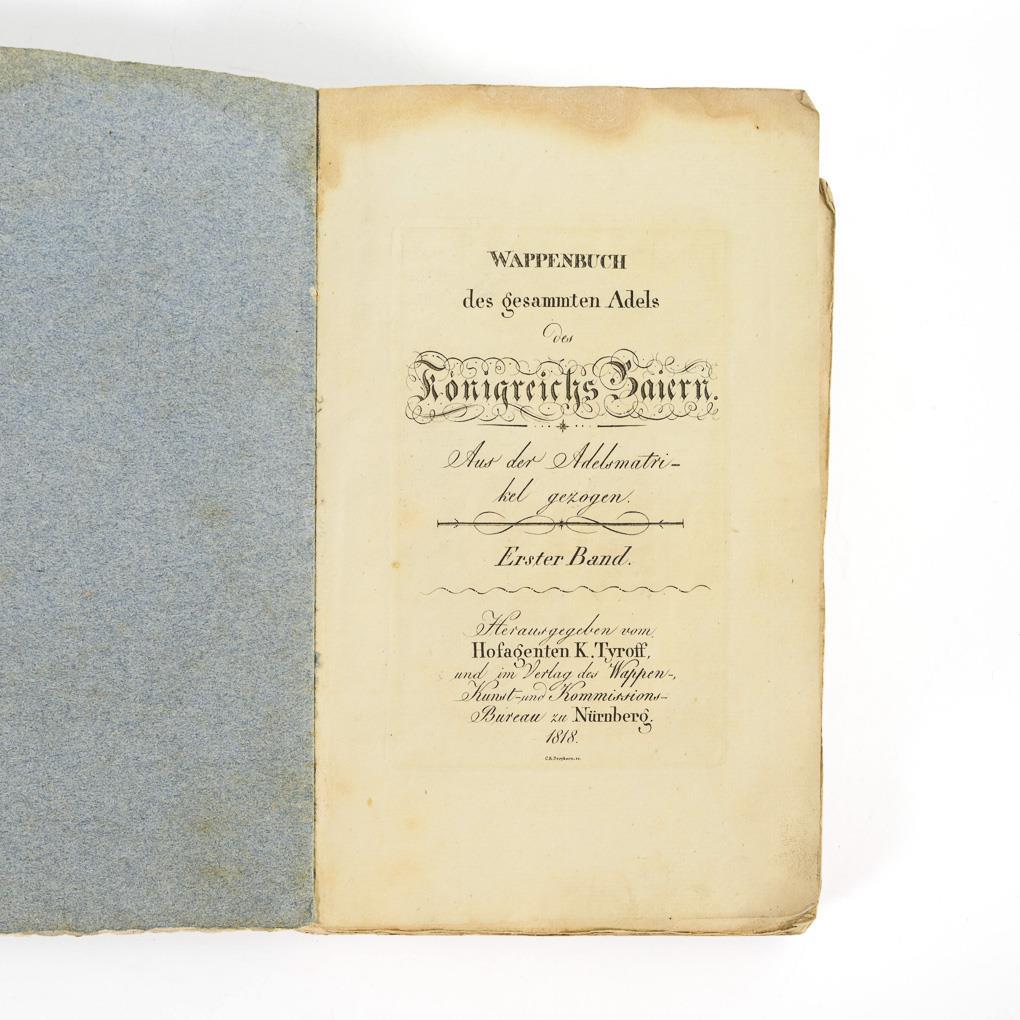 WAPPENBUCH
des gesammten Adels
des
Königreichs Baiern.
Aus der Adelsmatri-
kel gezogen.
Erster Band.
Herausgegeben vom
Hofagenten K. Tyroff,
und im Verlag des Wappen-,
Kunst- und Kommissions-
Bureau zu Nürnberg.
1818.